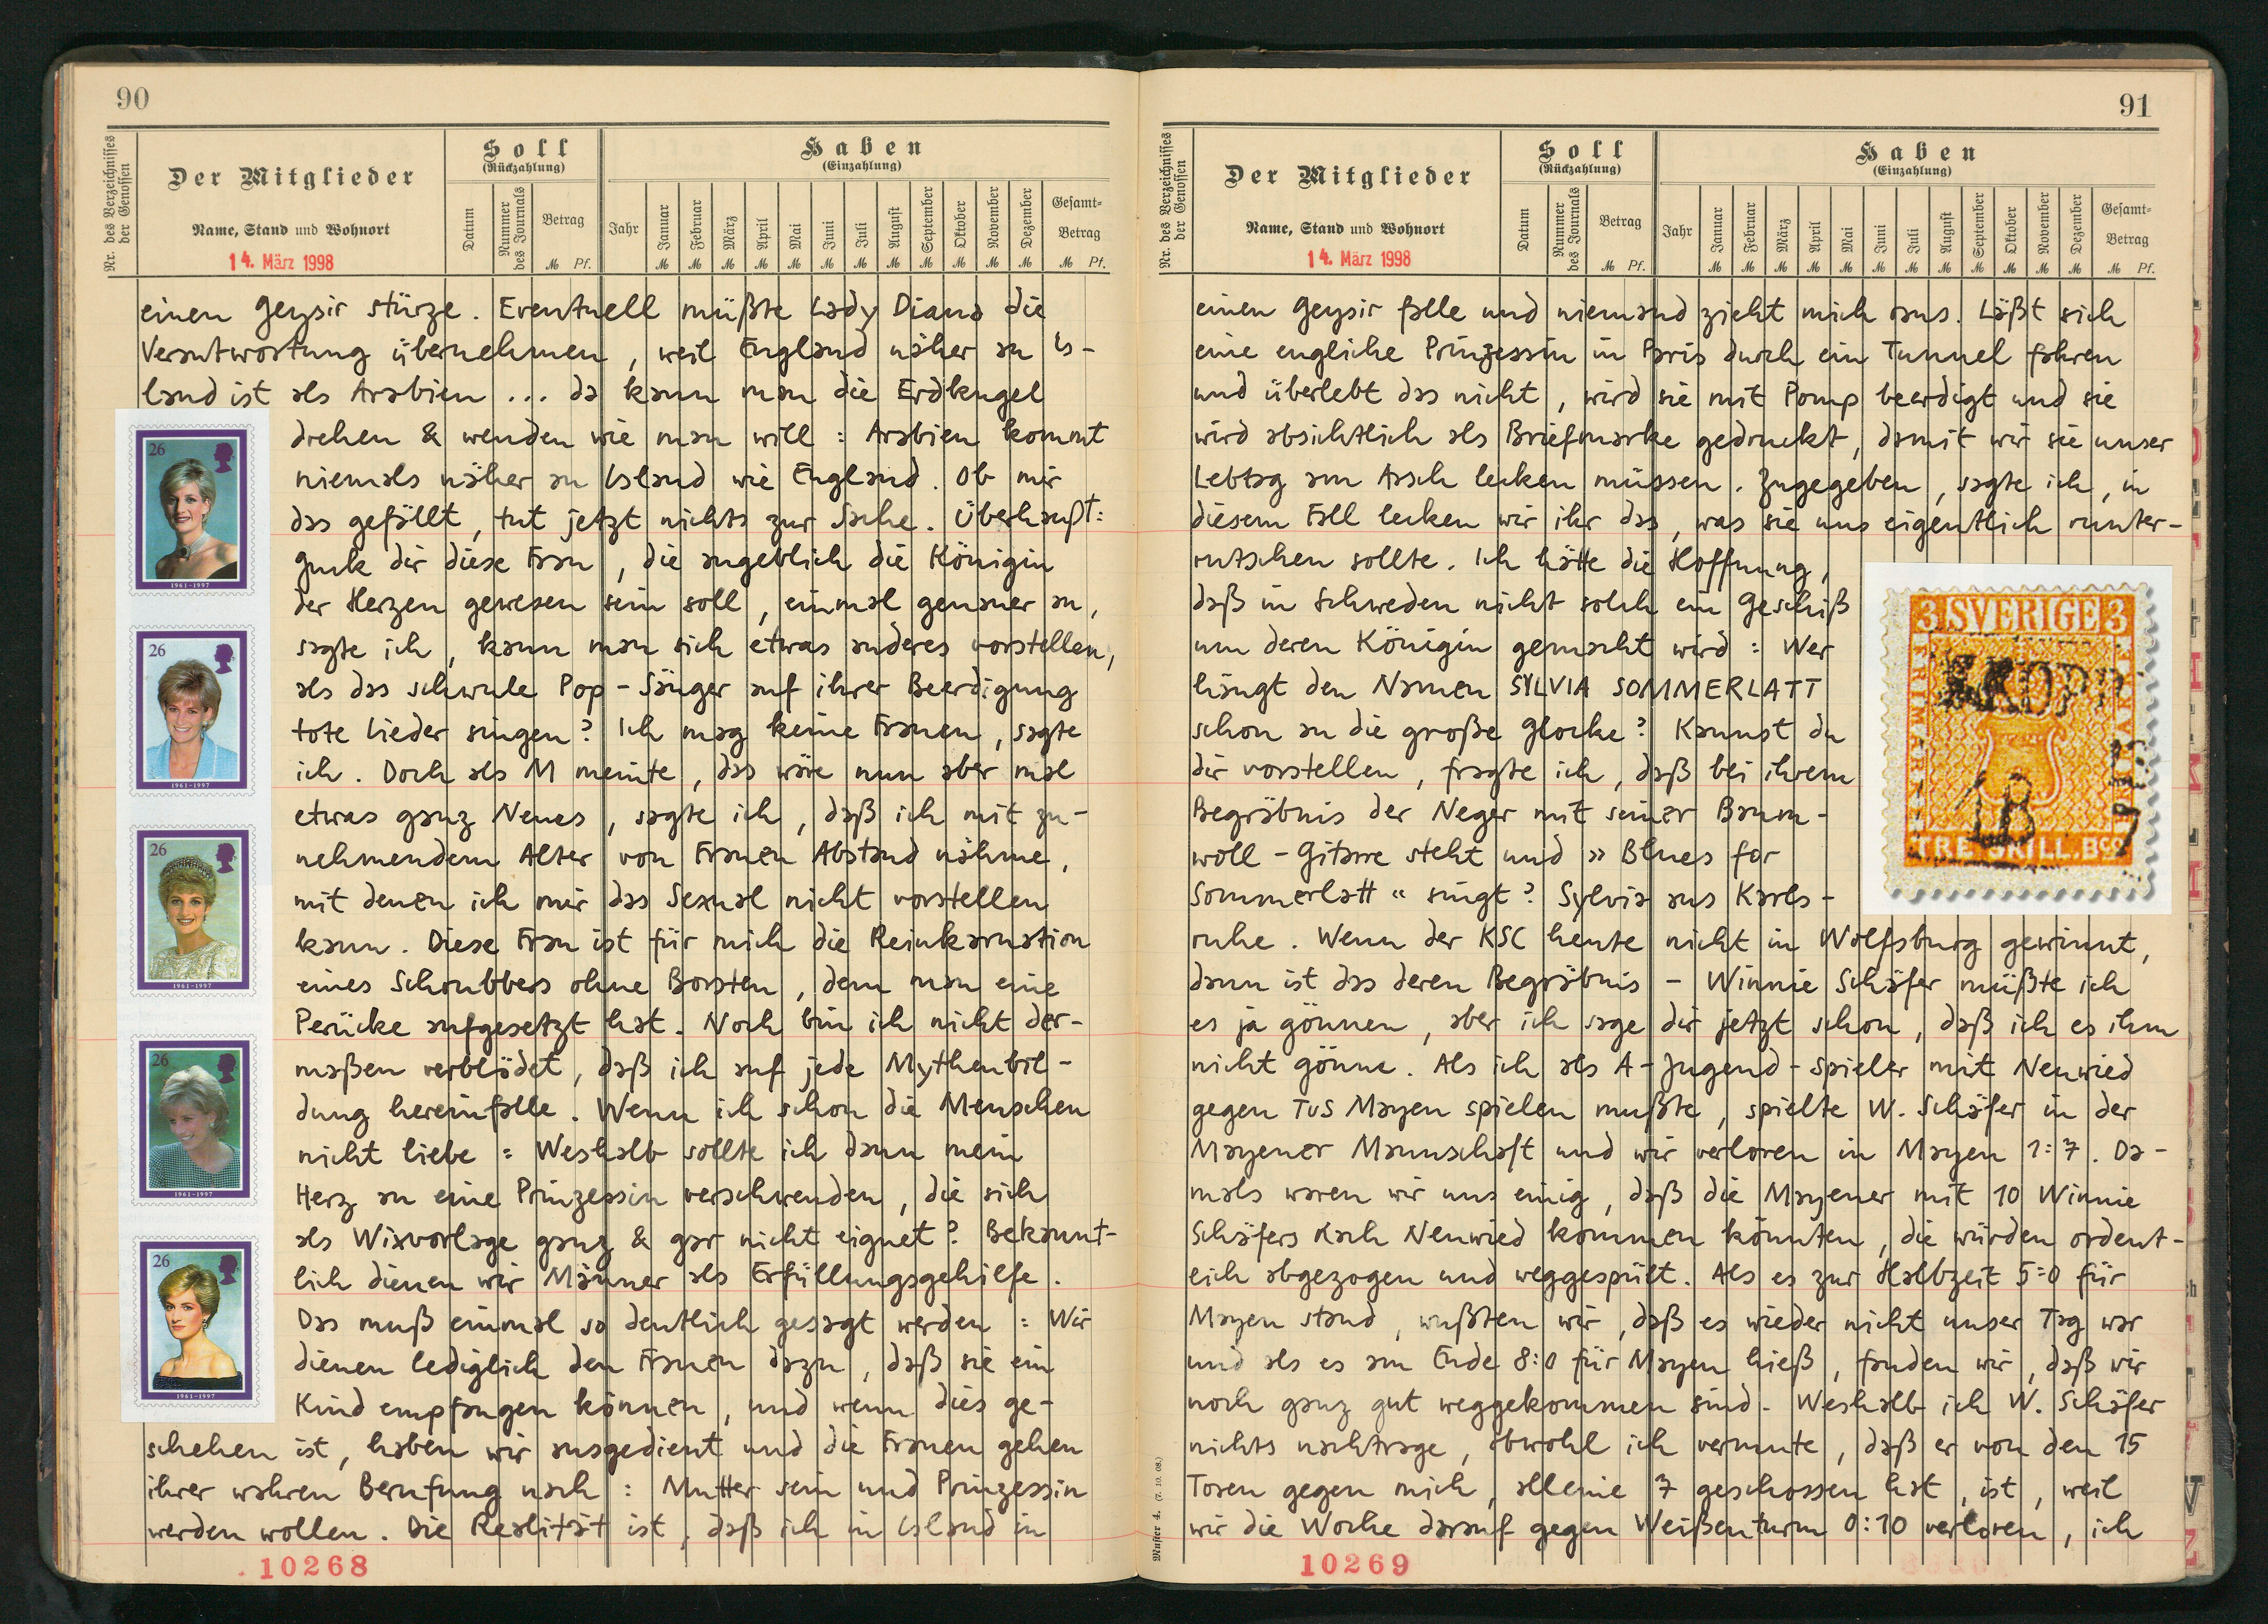 90
Nr. des Verzeichnisses der Genossen
Der Mitglieder
Name, Stand und Wohnort
Soll
(Rückzahlung)
Datum
Nummer des Journals
Betrag
M Pf.
Haben
(Einzahlung)
Jahr
Januar
Februar
März
April
Mai
Juni
Juli
August
September
Oktober
November
Dezember
Gesamt-
Betrag
M M M M M M M M M M M M M Pf.
14. März 1998
einen Geysir stürze. Eventuell müßte Lady Diana die
Verantwortung übernehmen, weil England näher an Is-
land ist als Arabien ... da kann man die Erdkugel
drehen & wenden wie man will: Arabien kommt
niemals näher an Island wie England. Ob mir
das gefällt, tut jetzt nichts zur Sache. Überhaupt:
Guck dir diese Frau, die angeblich die Königin
der Herzen gewesen sein soll, einmal genauer an,
sagte ich, kann man sich etwas anderes vorstellen,
als das schwule Pop-Sänger auf ihrer Beerdigung
tote Lieder singen? Ich mag keine Frauen, sagte
ich. Doch als M meinte, das wäre nun aber mal
etwas ganz Neues, sagte ich, daß ich mit zu-
nehmendem Alter von Frauen Abstand nähme,
mit denen ich mir das Sexual nicht vorstellen
kann. Diese Frau ist für mich die Reinkarnation
eines Schrubbers ohne Borsten, dem man eine
Perücke aufgesetzt hat. Noch bin ich nicht der-
maßen verblödet, daß ich auf jede Mythenbil-
dung hereinfalle. Wenn ich schon die Menschen
nicht liebe: Weshalb sollte ich dann mein
Herz an eine Prinzessin verschwenden, die sich
als Wixvorlage ganz & gar nicht eignet? Bekannt-
lich dienen wir Männer als Erfüllungsgehilfe.
Das muß einmal so deutlich gesagt werden: Wir
dienen lediglich den Frauen dazu, daß sie ein
Kind empfangen können, und wenn dies ge-
schehen ist, haben wir ausgedient und die Frauen gehen
ihrer wahren Berufung nach: Mutter sein und Prinzessin
werden wollen. Die Realität ist, daß ich in Island in
26
1961-1997
26
1961-1997
26
1961-1997
26
1961-1997
26
1961-1997
10268
91
Nr. des Verzeichnisses der Genossen
Der Mitglieder
Name, Stand und Wohnort
Soll
(Rückzahlung)
Datum
Nummer des Journals
Betrag
M Pf.
Haben
(Einzahlung)
Jahr
Januar
Februar
März
April
Mai
Juni
Juli
August
September
Oktober
November
Dezember
Gesamt-
Betrag
M M M M M M M M M M M M M Pf.
14. März 1998
einen Geysir falle und niemand zieht mich raus. Läßt sich
eine engliche Prinzessin in Paris durch ein Tunnel fahren
und überlebt das nicht, wird sie mit Pomp beerdigt und sie
wird absichtlich als Briefmarke gedruckt, damit wir sie unser
Lebtag am Arsch lecken müssen. Zugegeben, sagte ich, in
diesem Fall lecken wir ihr das, was sie uns eigentlich runter-
rutschen sollte. Ich hätte die Hoffnung,
daß in Schweden nicht solch ein Geschiß
um deren Königin gemacht wird: Wer
hängt den Namen SYLVIA SOMMERLATT
schon an die große Glocke? Kannst du
dir vorstellen, fragte ich, daß bei ihrem
Begräbnis der Neger mit seiner Baum-
woll-Gitarre steht und »Blues for
Sommerlatt« singt? Sylvia aus Karls-
ruhe. Wenn der KSC heute nicht in Wolfsburg gewinnt,
dann ist das deren Begräbnis - Winnie Schäfer müßte ich
es ja gönnen, aber ich sage dir jetzt schon, daß ich es ihm
nicht gönne. Als ich als A-Jugend-Spieler mit Neuwied
gegen TuS Mayen spielen mußte, spielte W. Schäfer in der
Mayener Mannschaft und wir verloren in Mayen 1:7. Da-
mals waren wir uns einig, daß die Mayener mit 10 Winnie
Schäfers nach Neuwied kommen könnten, die würden ordent-
lich abgezogen und weggespült. Als es zur Halbzeit 5:0 für
Mayen stand, wußten wir, daß es wieder nicht unser Tag war
und als es am Ende 8:0 für Mayen hieß, fanden wir, daß wir
noch ganz gut weggekommen sind. Weshalb ich W. Schäfer
nichts nachtrage, obwohl ich vermute, daß er von den 15
Toren gegen mich, alleine 7 geschossen hat, ist, weil
wir die Woche darauf gegen Weißenturm 0:10 verloren, ich
3 SVERIGE 3
FRIMÄRKE
TRE SKILL. Bco
Muster 4. (7. 10. 08.)
10269